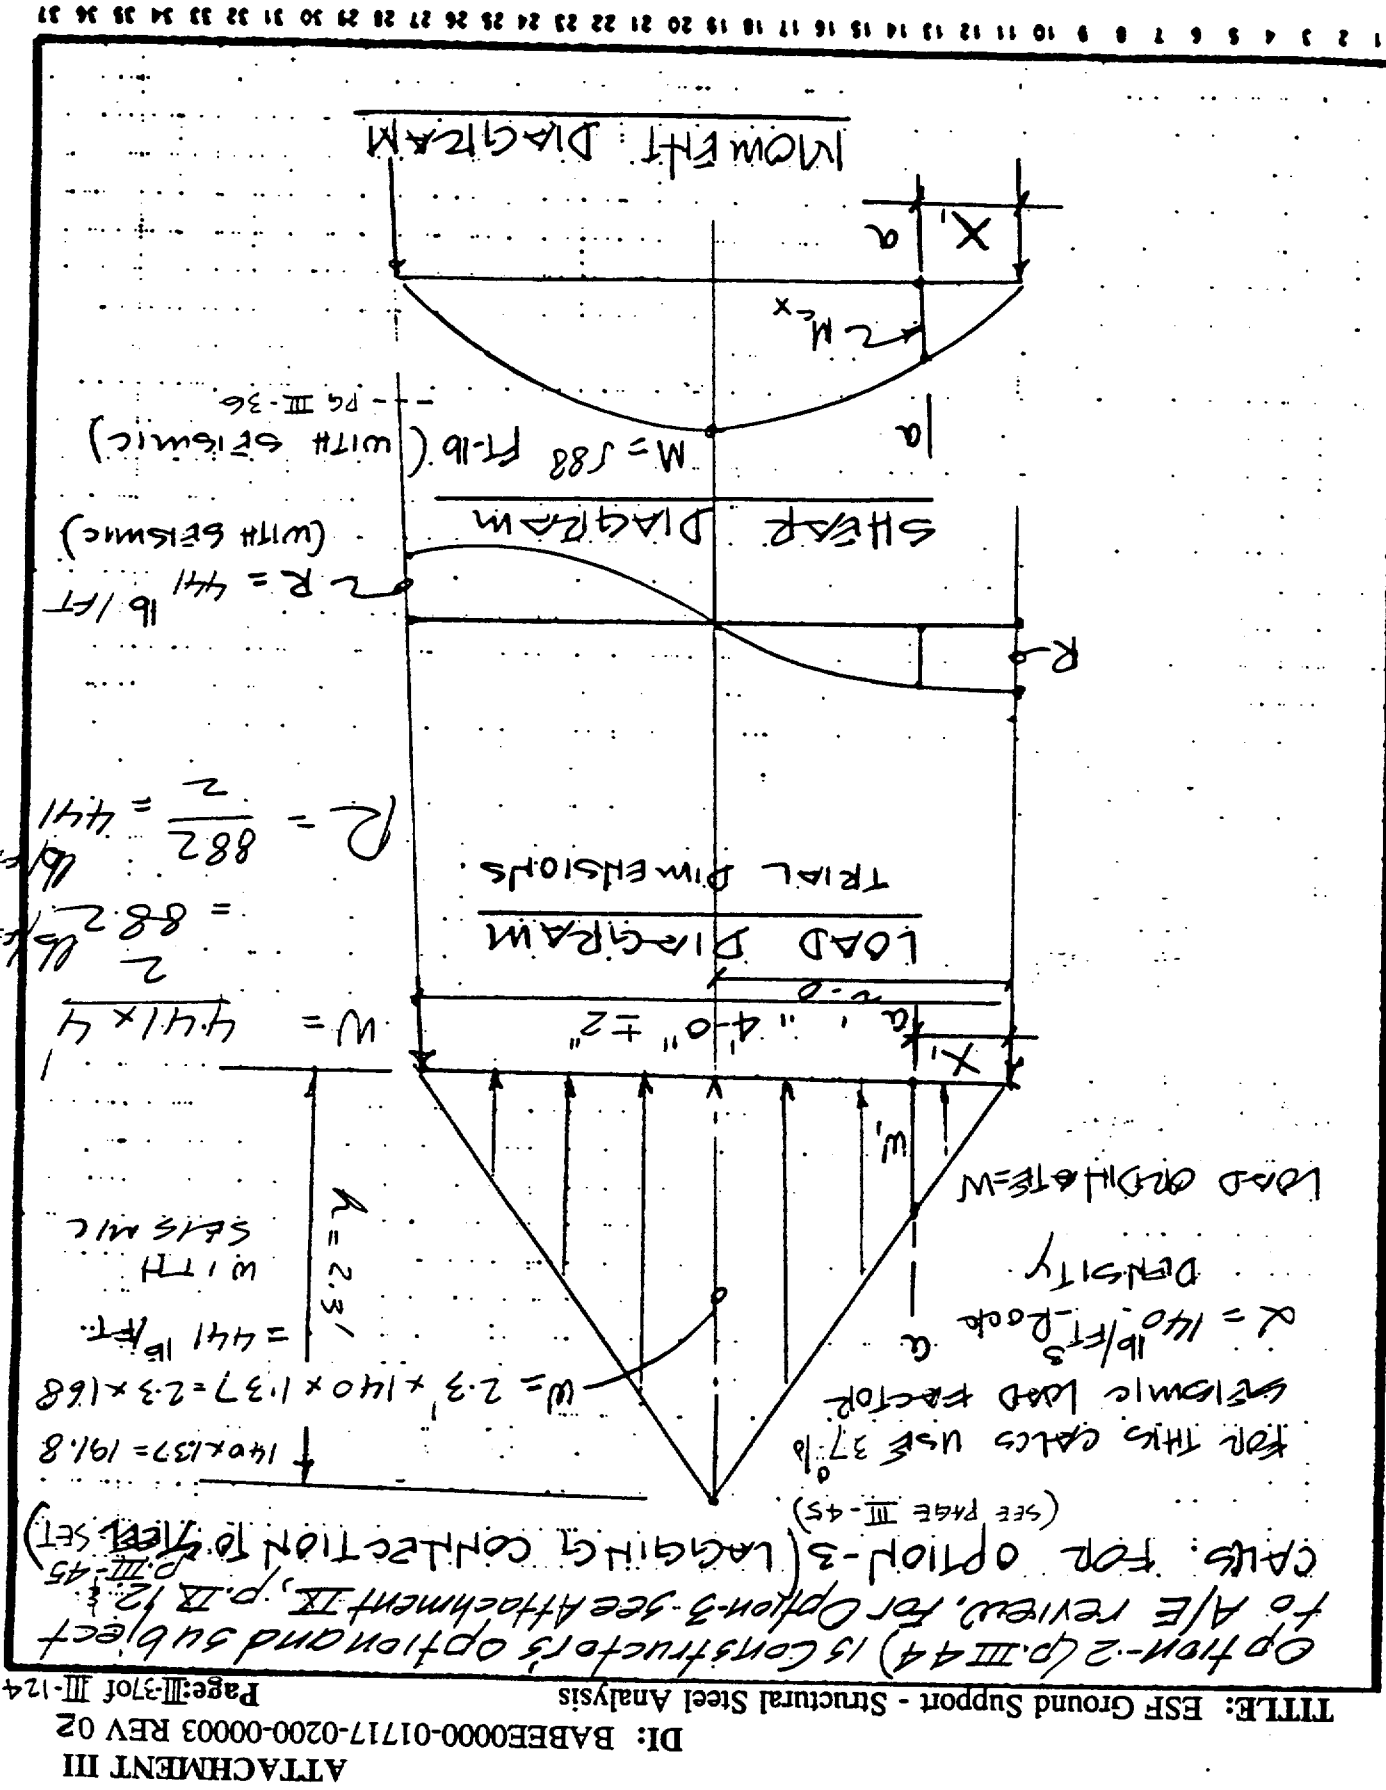 ATTACHMENT III
DI: BABEE0000-01717-0200-00003 REV 02
TITLE: ESF Ground Support - Structural Steel Analysis
Page: III-37 of III-124
Option-2 (p. III 44) is Constructor's option and subject
to A/E review. For Option-3 see Attachment IX, p. IX 12 &
p. III-45
CALCS: FOR OPTION-3 (LAGGING CONNECTION TO STEEL SET)
(SEE PAGE III-45)
FOR THIS CALCS USE 37%
SEISMIC LOAD FACTOR
α = 140 lb/FT3 Rock
DENSITY
LOAD ORDINATE=W
140x1.37= 191.8
W= 2.3' x 140 x 1.37 = 2.3 x 168
= 441 lb/FT.
WITH
SEISMIC
h = 2.3'
a
W1
X1
a
4'-0" ± 2"
2-0
LOAD DIAGRAM
TRIAL DIMENSIONS
W = 441 x 4 / 2
= 882 lb/F
R = 882 / 2 = 441 lb/F
R
R = 441 lb/FT
(WITH SEISMIC)
SHEAR DIAGRAM
M = 588 FT-lb (WITH SEISMIC)
--- PG III-36
a
Mx
X1
a
MOMENT DIAGRAM
1 2 3 4 5 6 7 8 9 10 11 12 13 14 15 16 17 18 19 20 21 22 23 24 25 26 27 28 29 30 31 32 33 34 35 36 37